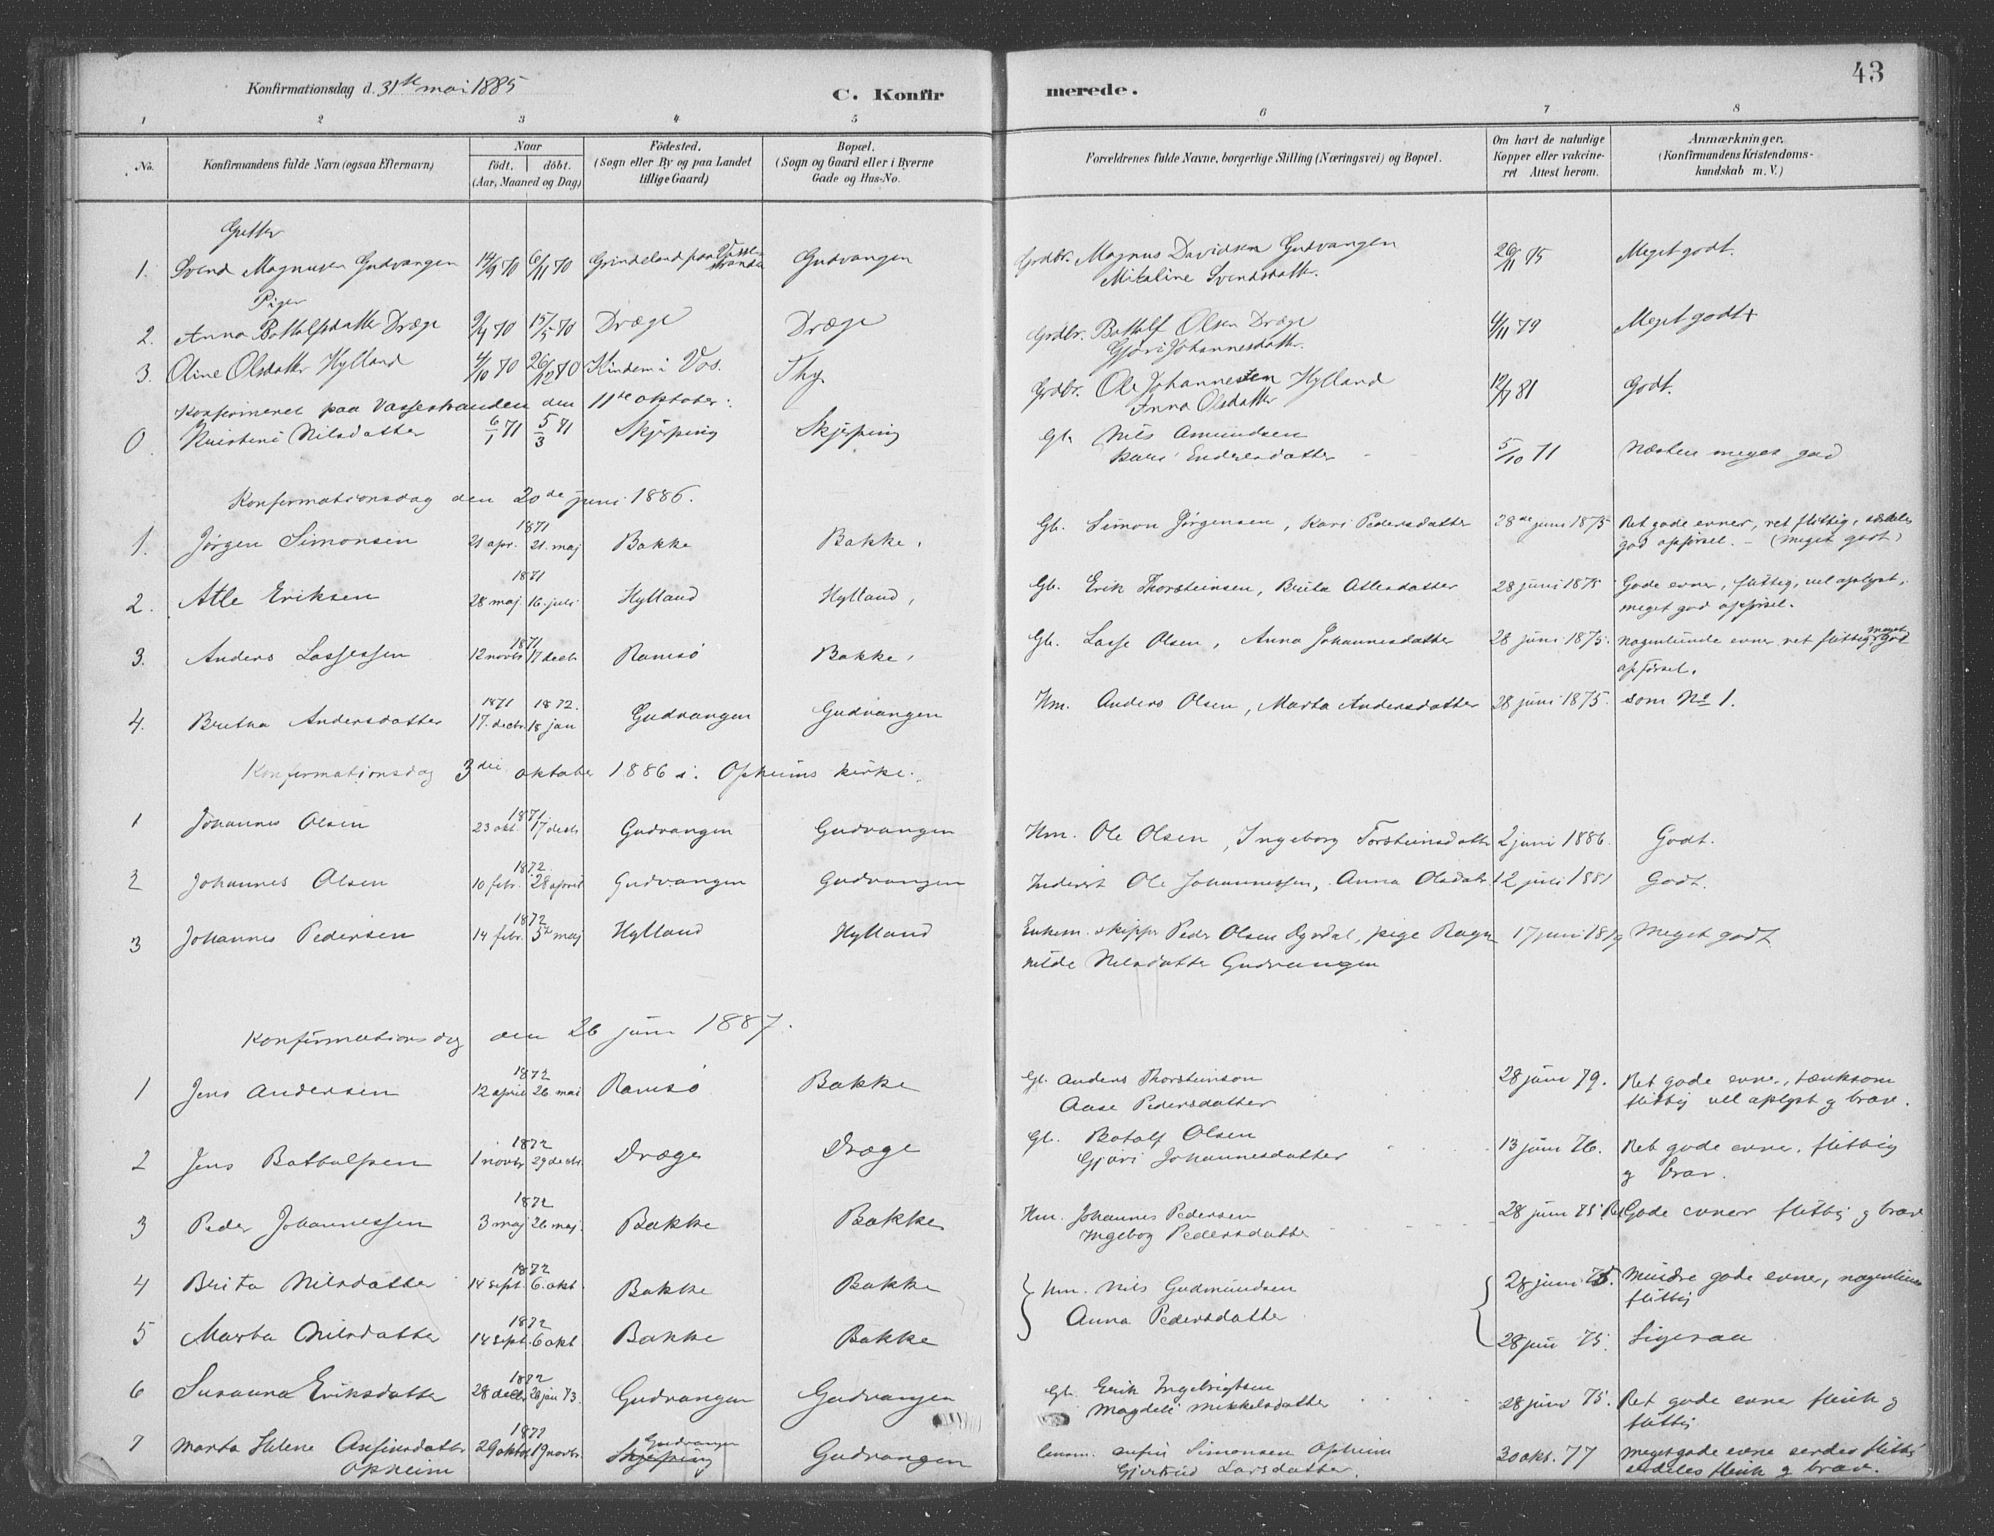 43
Konfirmationsdag d. 31te mai 1885
C. Konfir merede.
1 2 3 4 5 6 7 8
No. Konfirmandens fulde Navn (ogsaa Efternavn) Naar født. døbt. (Aar, Maaned og Dag) Födested. (Sogn eller By og paa Landet tillige Gaard) Bopæl. (Sogn og Gaard eller i Byerne Gade og Hus-No. Forældrenes fulde Navne, borgerlige Stilling (Næringsvei) og Bopæl. Om havt de naturlige Kopper eller vakcineret Attest herom. Anmærkninger. (Konfirmandens Kristendomskundskab m. V.)
Gutter
1. Svend Magnusen Gudvangen 14/9 70 6/11 70 Grindeland paa Vassstranden Gudvangen Grdbr. Magnus Davidsen Gudvangen 26/11 75 Meget godt.
Mikaline Svendsdatter.
Piger
2. Anna Bottolfsdatter Dræge 9/4 70 15/5 70 Dræge Dræge Grdbr. Bottolf Olsen Dræge 4/11 79 Meget godt+
Gjøri Johannesdatter.
3. Oline Olsdatter Hylland 4/10 70 26/12 70 Kindem i Vos. Thy Grdbr. Ole Johannessen Hylland 12/7 81 Godt.
Anna Olsdatter
Konfirmeret paa Vassestranden den 11te oktober:
0. Kristine Nilsdatter 6/1 71 5/3 71 Skjerping Skjerping Gb. Nils Amundsen 5/10 71 Næsten meget god
Kari Endresdatter
Konfirmationsdag den 20de juni 1886.
1. Jørgen Simonsen 1871 21 apr. 21. maj Bakke Bakke. Gb. Simon Jørgensen, Kari Pedersdatter 28de juni 1875 Ret gode evner, ret flittig, særdeles
god opførsel. – (Meget godt)
2. Atle Eriksen 1871 28 maj 16. juli Hylland Hylland, Gb. Erik Thorsteinsen, Brita Atlesdatter 28 juni 1875 Gode evner, flittig, vel oplyst,
meget god opførsel.
3. Anders Lassesen 1871 12 novbr 17 decbr Ramsø Bakke, Gb. Lasse Olsen, Anna Johannesdatter 28 juni 1875. nogenlunde evner ret flittig meget god
opførsel.
4. Britha Andersdatter 1871 17. decbr 1872. 18 jan Gudvangen Gudvangen Hm. Anders Olsen, Marta Andersdatter 28 juni 1875. som No 1.
Konfirmationsdag 3die oktober 1886 i Opheims kirke.
1 Johannes Olsen 1871 23 okt. 17 decbr Gudvangen Gudvangen Hm. Ole Olsen, Ingeborg Torsteinsdatter 2 juni 1886. Godt.
2 Johannes Olsen 1872. 10 febr. 28 april Gudvangen Gudvangen Inderst Ole Johannessen, Anna Olsdatr 12 juli 1881 Godt.
3 Johannes Pedersen 1872 14 febr. 5te maj Hylland Hylland Enkem. skippr Peder Olsen Dyrdal, pige Ragn 17 juni 1879 Meget godt
hilde Nilsdatter Gudvangen
Konfirmationsdag den 26 juni 1887.
1 Jens Andersen 1872 12 april 26 mai Ramsø Bakke Gb. Anders Thorsteinson 28 juni 79. Ret gode evne., tænksom
Aase Pedersdatter flittig vel oplyst g brav.
2 Jens Batholfsen 1872 1 novbr 29 decbr. Dræge Dræge Gb. Botolf Olsen 13 juni 76. Ret gode evne. flittig
Gjøri Johannesdatter g brav.
3 Peder Johannessen 1872 3 maj 26 maj. Bakke Bakke Hm. Johannes Pedersen 28 juni 75. Ret Gode evner flittig g brav
Ingebog Pedersdatter
4 Brita Nilsdatter 1872 14 sept. 6. okt. Bakke Bakke Hm. Nils Gudmundsen 28 juni 75. Mindre gode evner, nogenlunde
Anna Pedersdatter flittig
5 Marta Nilsdatter 1872 14 sept. 6 okt Bakke Bakke 28 juni 75. Ligesaa
6 Susanna Eriksdatter 1872 28 decbr 26 jan 73. Gudvangen Gudvangen Gb. Erik Ingebrigtsen 28 juni 75. Ret gode evner flink g
Magdeli Mikkelsdatter flittig
7 Marta Helene Anfinsdatter 1872 29 oktbr 19 novbr. Gudvangen Skjerping Gudvangen Anfin Simonsen Opheim 30 okt. 77 Meget gode evne serdeles flittig
Opheim Gjertrud Larsdatter. serdeles flink g brav.